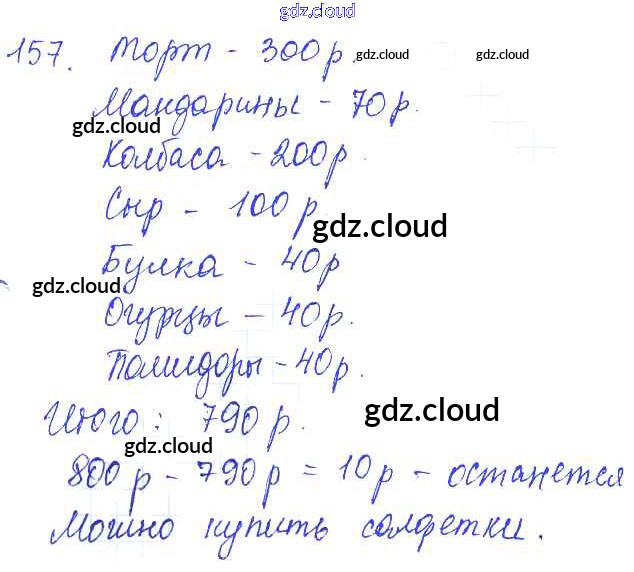 gdz.cloud
157. Торт - 300 р. gdz.cloud gdz.cloud
Мандарины - 70 р.
gdz.cloud
Колбаса - 200 р.
Сыр - 100 р
gdz.cloud
Булка - 40 р
gdz.cloud
Огурцы - 40 р.
Помидоры - 40 р.
Итого: 790 р. gdz.cloud
gdz.cloud
800 р - 790 р = 10 р - останется
Можно купить салфетки.